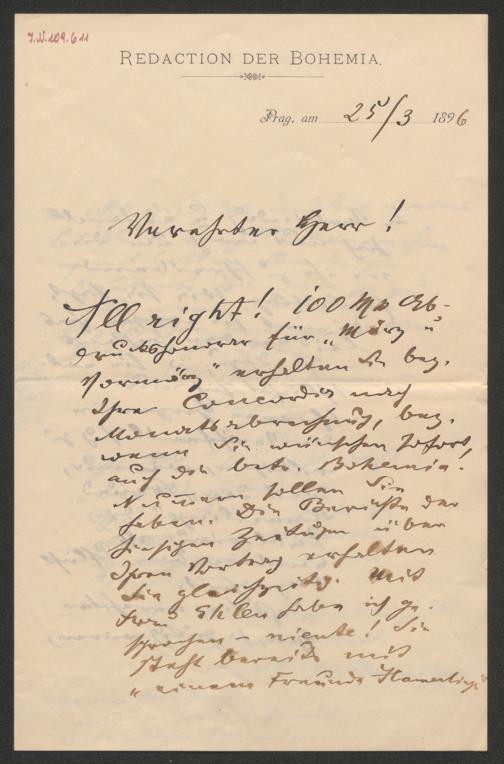 I.N. 109.611
REDACTION DER BOHEMIA.
Prag, am 25/3 1896
Verehrter Herr!
All right! 100 Mk Ab-
druckshonorar für „März u
Vormärz" erhalten Sie bez.
Ihre Concordia nach
Monatsabrechnung, bez.
wenn Sie wünschen sofort,
auch die betr. Bohemia-
Nummern sollen Sie
haben. Die Berichte der
hiesigen Zeitungen über
Ihren Vortrag erhalten
Sie gleichzeitig. Mit
Frau habe ich ge-
sprochen – niente! Sie
steht bereits mit
„einem Freunde Hamerlings"